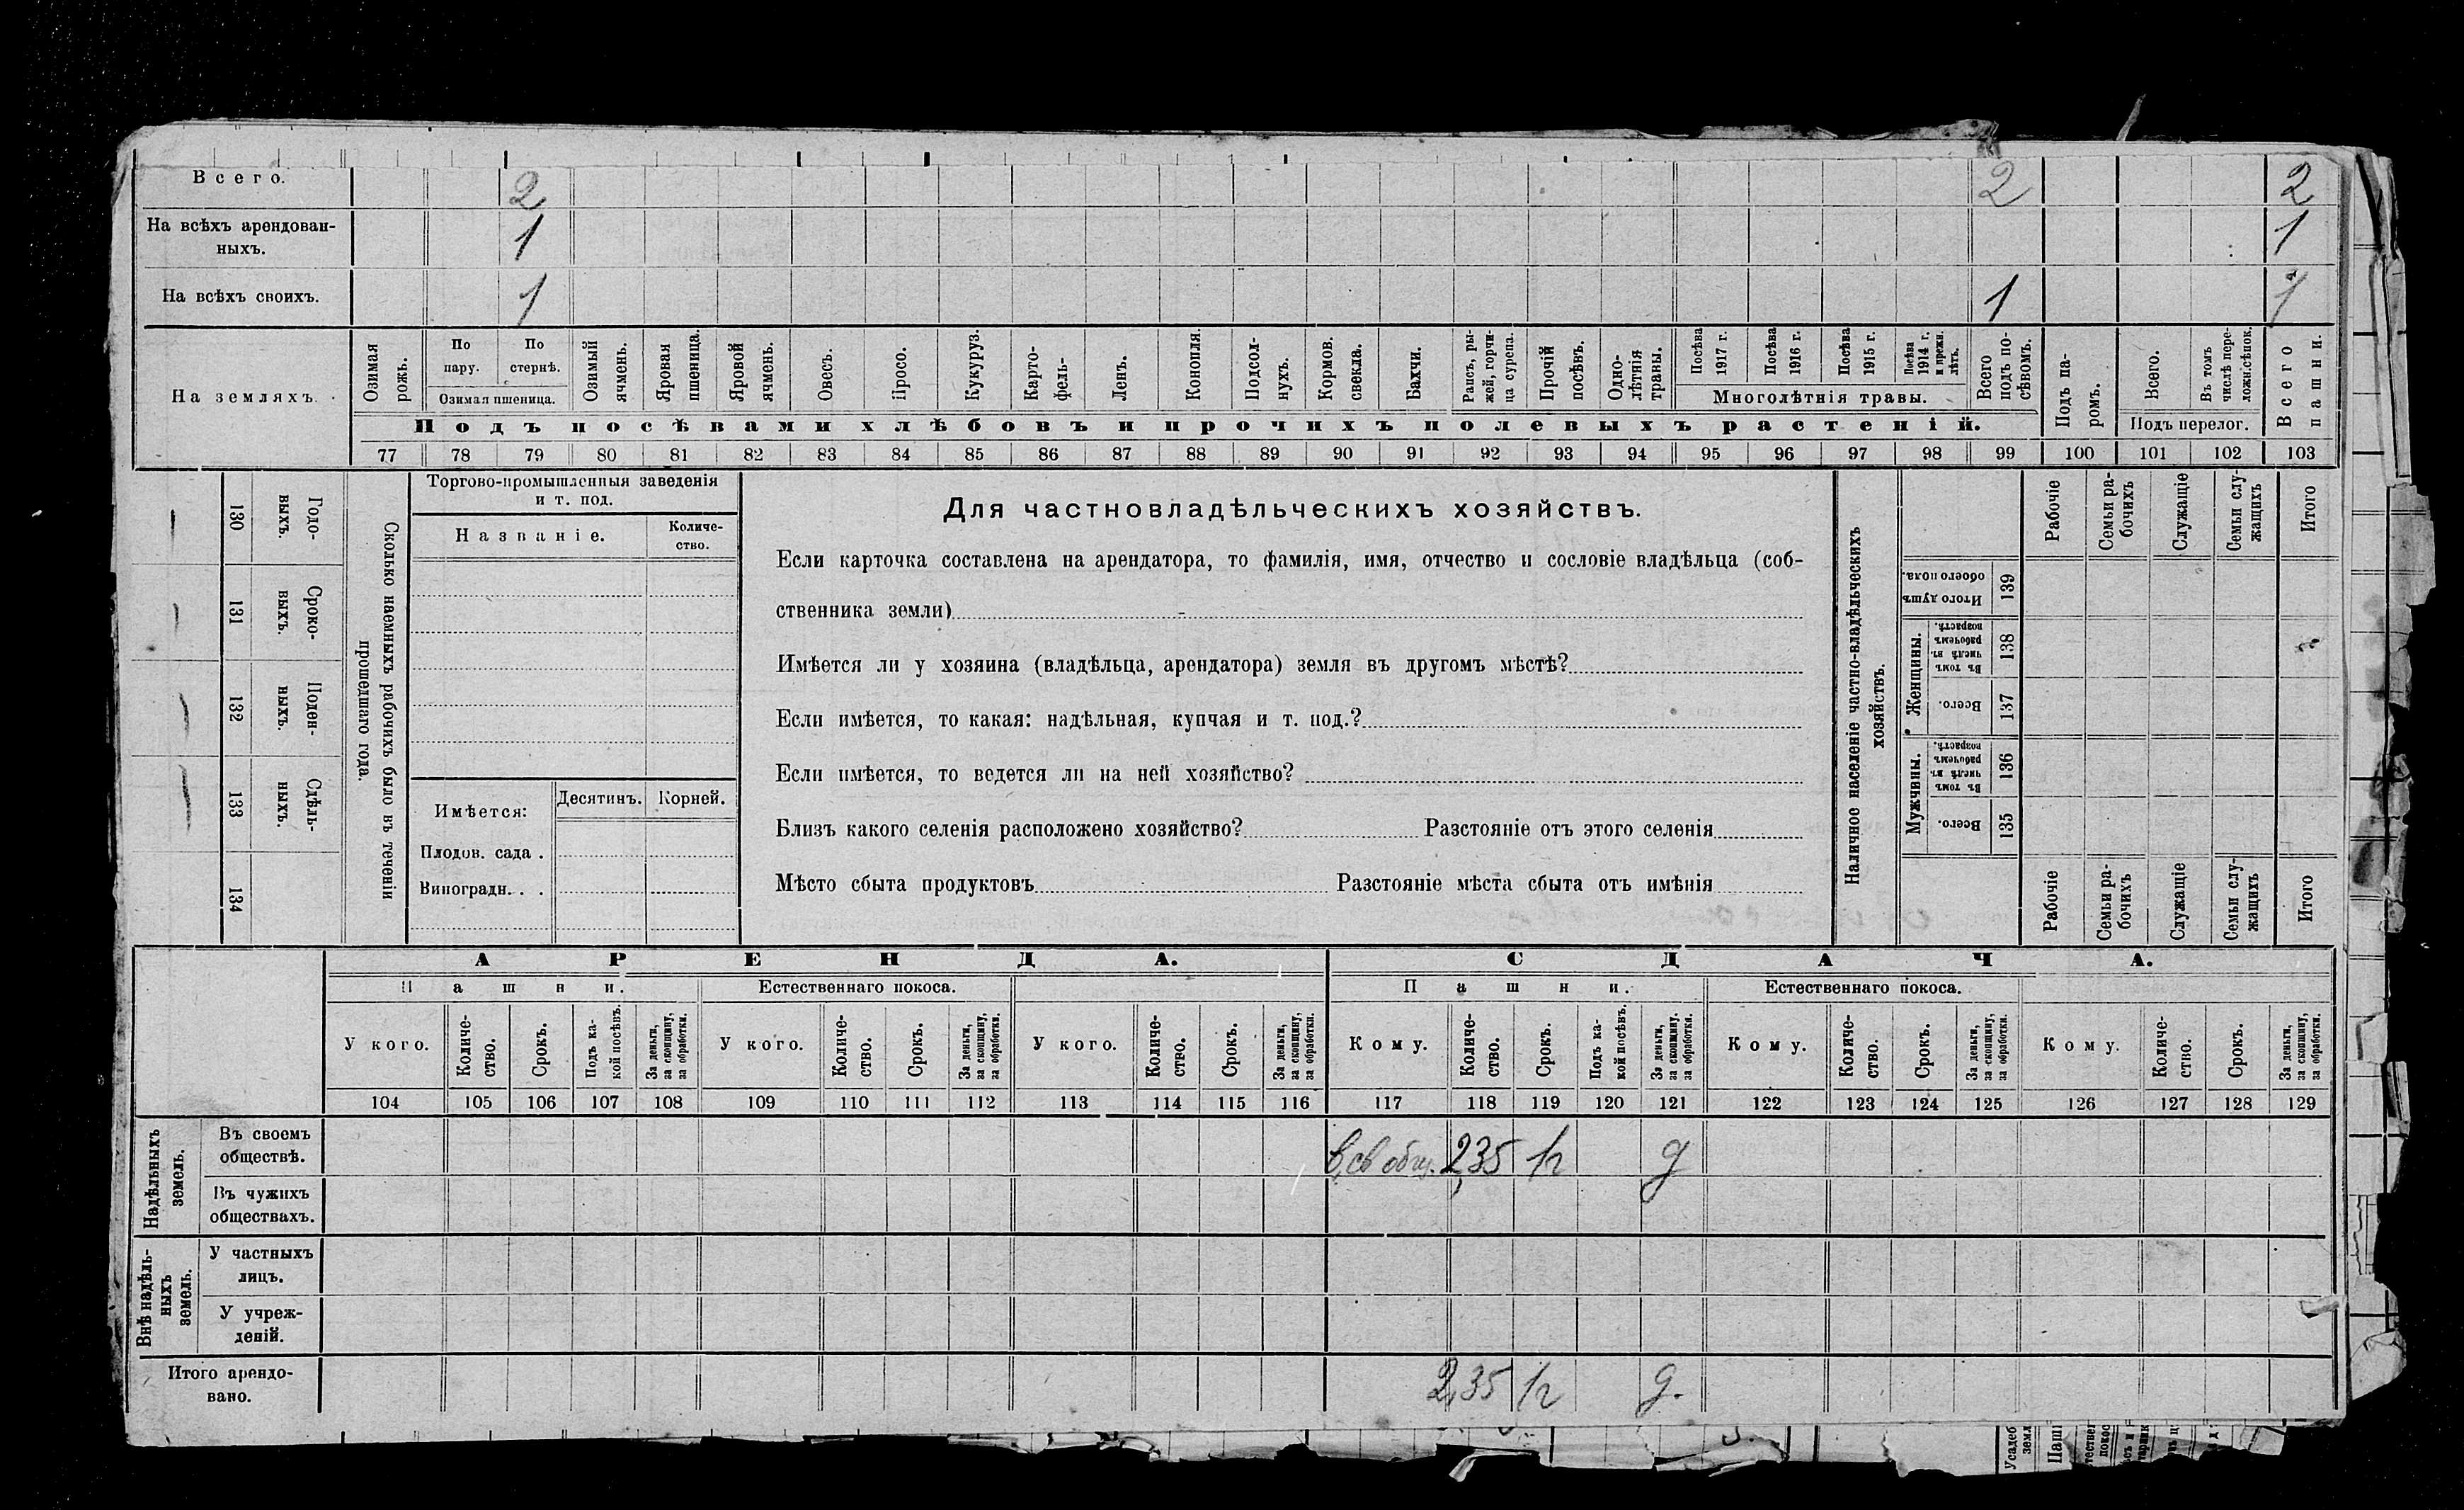 Всего. 2 2 2
На всѣхъ арендован-
ныхъ. 1 1
На всѣхъ своихъ. 1 1 1
На земляхъ.
Озимая рожь.
По пару.
По стернѣ.
Озимая пшеница.
Озимый ячмень.
Яровая пшеница.
Яровой ячмень.
Овесъ.
Просо.
Кукуруз.
Карто-
фель-
Ленъ.
Конопля.
Подсол-
нухъ.
Кормов. свекла.
Бахчи.
Рапсъ, ры-
жей, горчи-
ца сурепа.
Прочій посѣвъ.
Одно-
лѣтнія травы.
Посѣва 1917 г.
Посѣва 1916 г.
Посѣва 1915 г.
Посѣва 1914 г. и прежн. лѣтъ.
Многолѣтнія травы.
Всего подъ по-
сѣвомъ.
Подъ па-
ромъ.
Всего.
Въ томъ числѣ пере-
ложн.сѣнок.
Подъ перелог.
Всего пашни.
Подъ посѣвами хлѣбовъ и прочихъ полевыхъ растеній.
77 78 79 80 81 82 83 84 85 86 87 88 89 90 91 92 93 94 95 96 97 98 99 100 101 102 103
130 Годо-
выхъ.
131 Сроко-
выхъ.
132 Поден-
ныхъ.
133 Сдѣль-
ныхъ.
134
Сколько наемныхъ рабочихъ было въ теченіи
прошедшаго года.
Торгово-промышленныя заведенія
и т. под.
Названіе.
Количе-
ство.
Имѣется:
Десятинъ. Корней.
Плодов. сада .
Виноградн. . .
Для частновладѣльческихъ хозяйствъ.
Если карточка составлена на арендатора, то фамилія, имя, отчество и сословіе владѣльца (соб-
ственника земли)
Имѣется ли у хозяина (владѣльца, арендатора) земля въ другомъ мѣстѣ?
Если имѣется, то какая: надѣльная, купчая и т. под.?
Если имѣется, то ведется ли на ней хозяйство?
Близъ какого селенія расположено хозяйство? Разстояніе отъ этого селенія
Мѣсто сбыта продуктовъ Разстояніе мѣста сбыта отъ имѣнія
Наличное населеніе частно-владѣльческихъ
хозяйствъ.
Рабочіе
Семьи ра-
бочихъ
Служащіе
Семьи слу-
жащихъ
Итого
Итого душъ обоего пола. 139
Женщины.
Въ томъ числѣ въ рабочемъ возрастѣ. 138
Всего. 137
Мужчины.
Въ томъ числѣ въ рабочемъ возрастѣ. 136
Всего. 135
Рабочіе
Семьи ра-
бочихъ
Служащіе
Семьи слу-
жащихъ
Итого
АРЕНДА. СДАЧА.
Пашни. Естественнаго покоса. Пашни. Естественнаго покоса.
У кого.
Количе-
ство.
Срокъ.
Подъ ка-
кой посѣвъ.
За деньги, за скопщину, за обработки.
У кого.
Количе-
ство.
Срокъ.
За деньги, за скопщину, за обработки.
У кого.
Количе-
ство.
Срокъ.
За деньги, за скопщину, за обработки.
Кому.
Количе-
ство.
Срокъ.
Подъ ка-
кой посѣвъ.
За деньги, за скопщину. за обработки.
Кому.
Количе-
ство.
Срокъ.
За деньги, за скопщину, за обработки.
Кому.
Количе-
ство.
Срокъ.
За деньги, за скопщину, за обработки.
104 105 106 107 108 109 110 111 112 113 114 115 116 117 118 119 120 121 122 123 124 125 126 127 128 129
Надѣльныхъ
земель.
Въ своемъ
обществѣ. в св общ. 2,35 1г д
Въ чужихъ
обществахъ.
Внѣ надѣль-
ныхъ
земель.
У частныхъ
лицъ.
У учреж-
деній.
Итого арендо-
вано. 2,35 1г д.